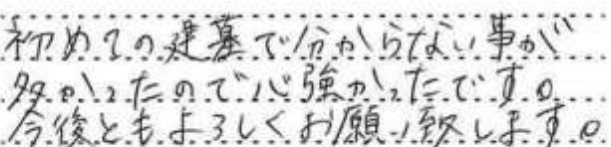 初めての建墓で分からない事が
多かったので心強かったです。
今後ともよろしくお願い致します。